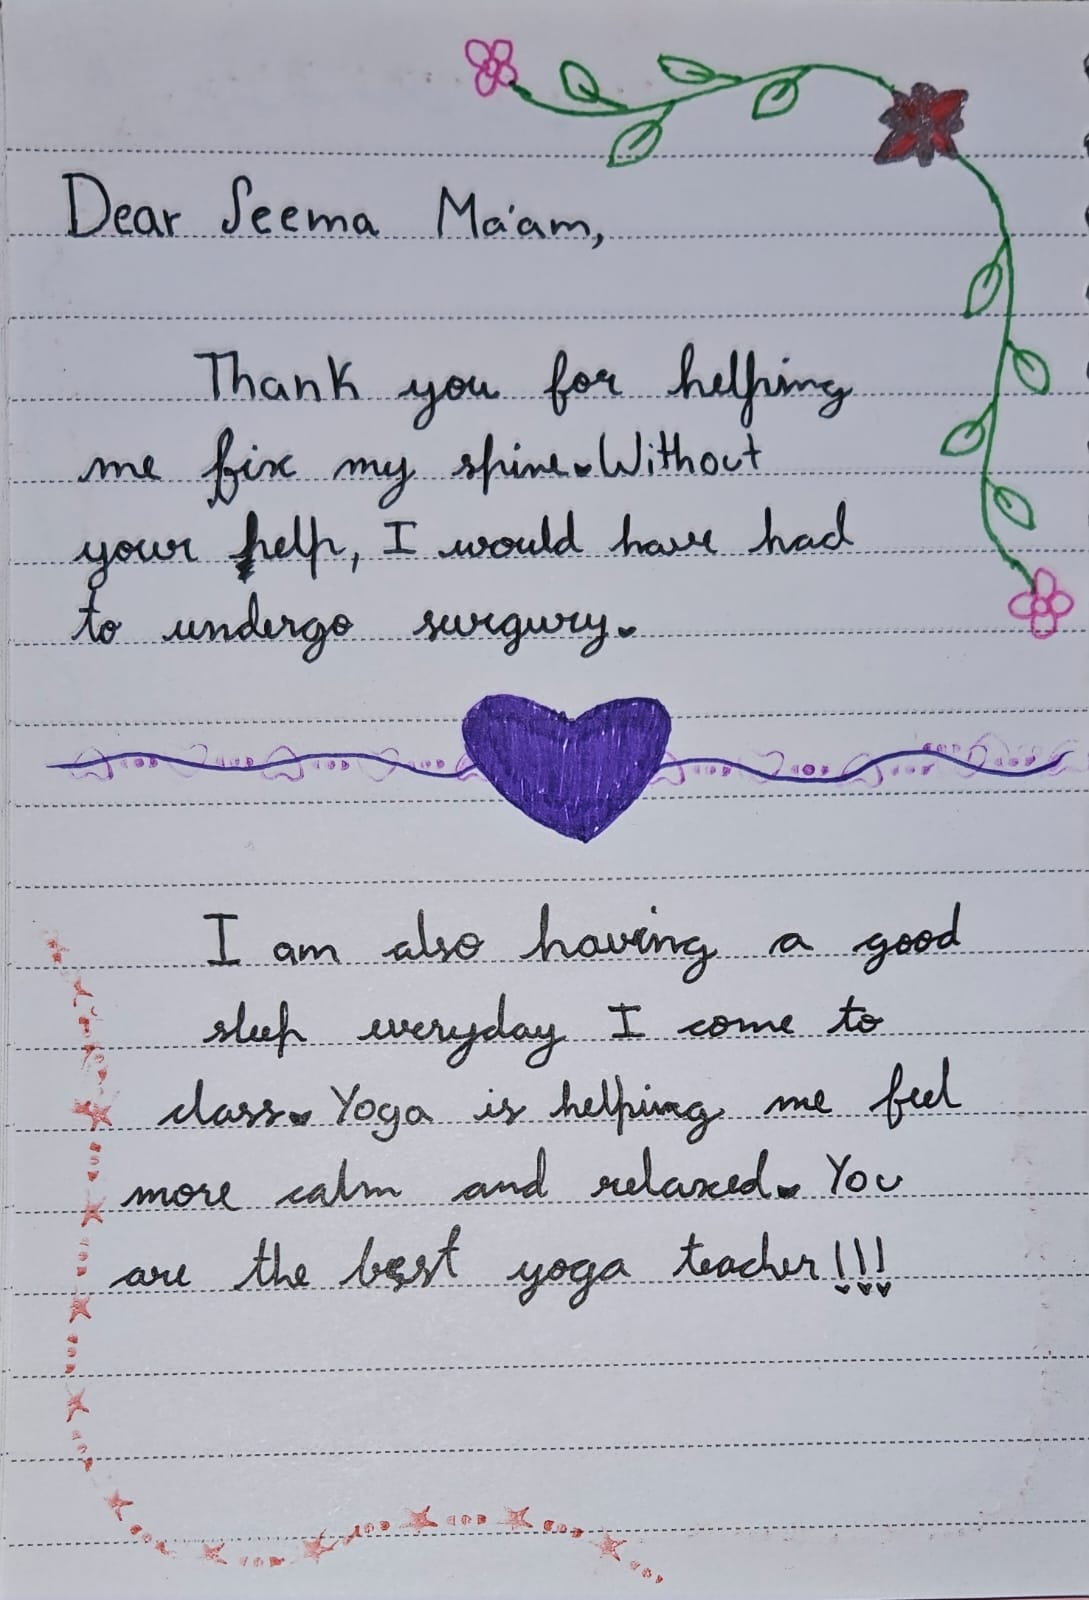 Dear Seema Ma'am,
Thank you for helping
me fix my spine. Without
your help, I would have had
to undergo surgury.
I am also having a good
sleep everyday I come to
class. Yoga is helping me feel
more calm and relaxed. You
are the best yoga teacher!!!